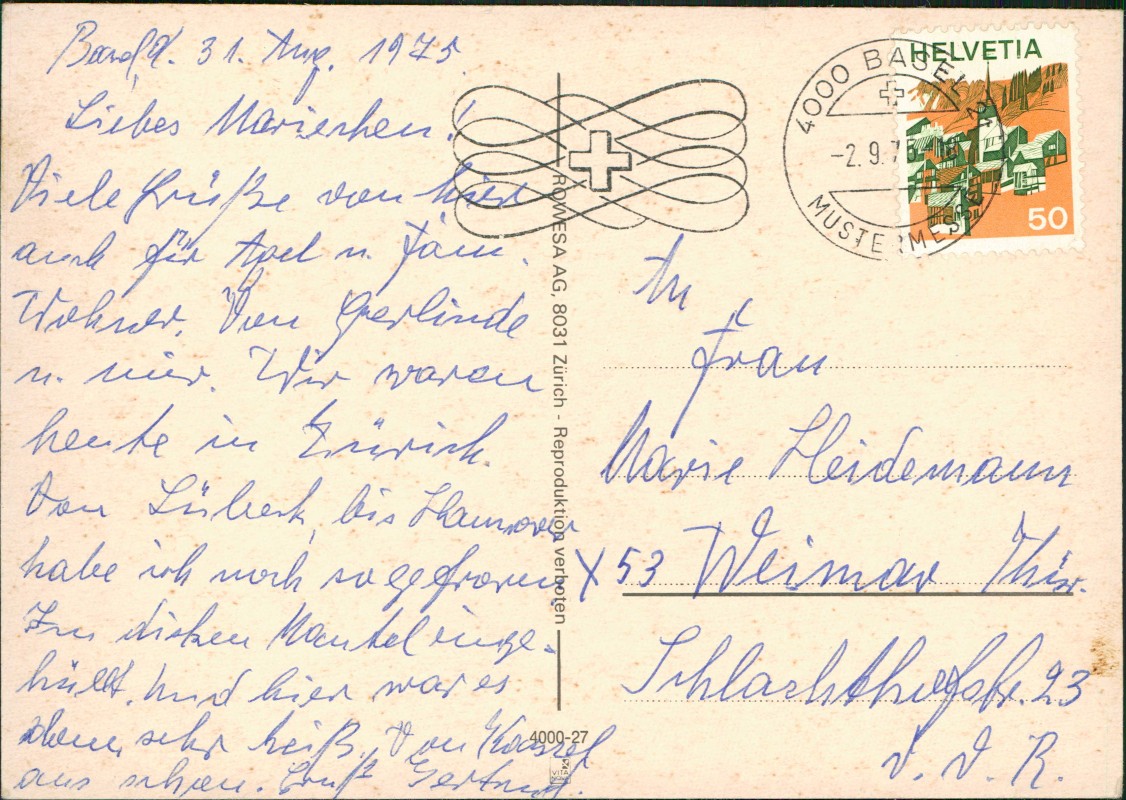 Basel, d. 31. Aug. 1975
Liebes Mariechen!
Viele Grüße von hier
auch für Axel u. Fam.
Wohner. Von Gerlinde
u. mir. Wir waren
heute in Zürich.
Von Lübeck bis Hannover
habe ich noch so gefroren
Im dicken Mantel einge-
hüllt. Und hier war es
dann sehr heiß. Von Kassel
aus schon. Gruß Gertrud.
ROWESA AG, 8031 Zürich - Reproduktion verboten
4000-27
VITA
4000 BASEL 21
-2.9.75
MUSTERMESSE
HELVETIA
50
An
Frau
Marie Heidemann
X 53 Weimar Thür.
Schlachthofstr. 23
D. D. R.